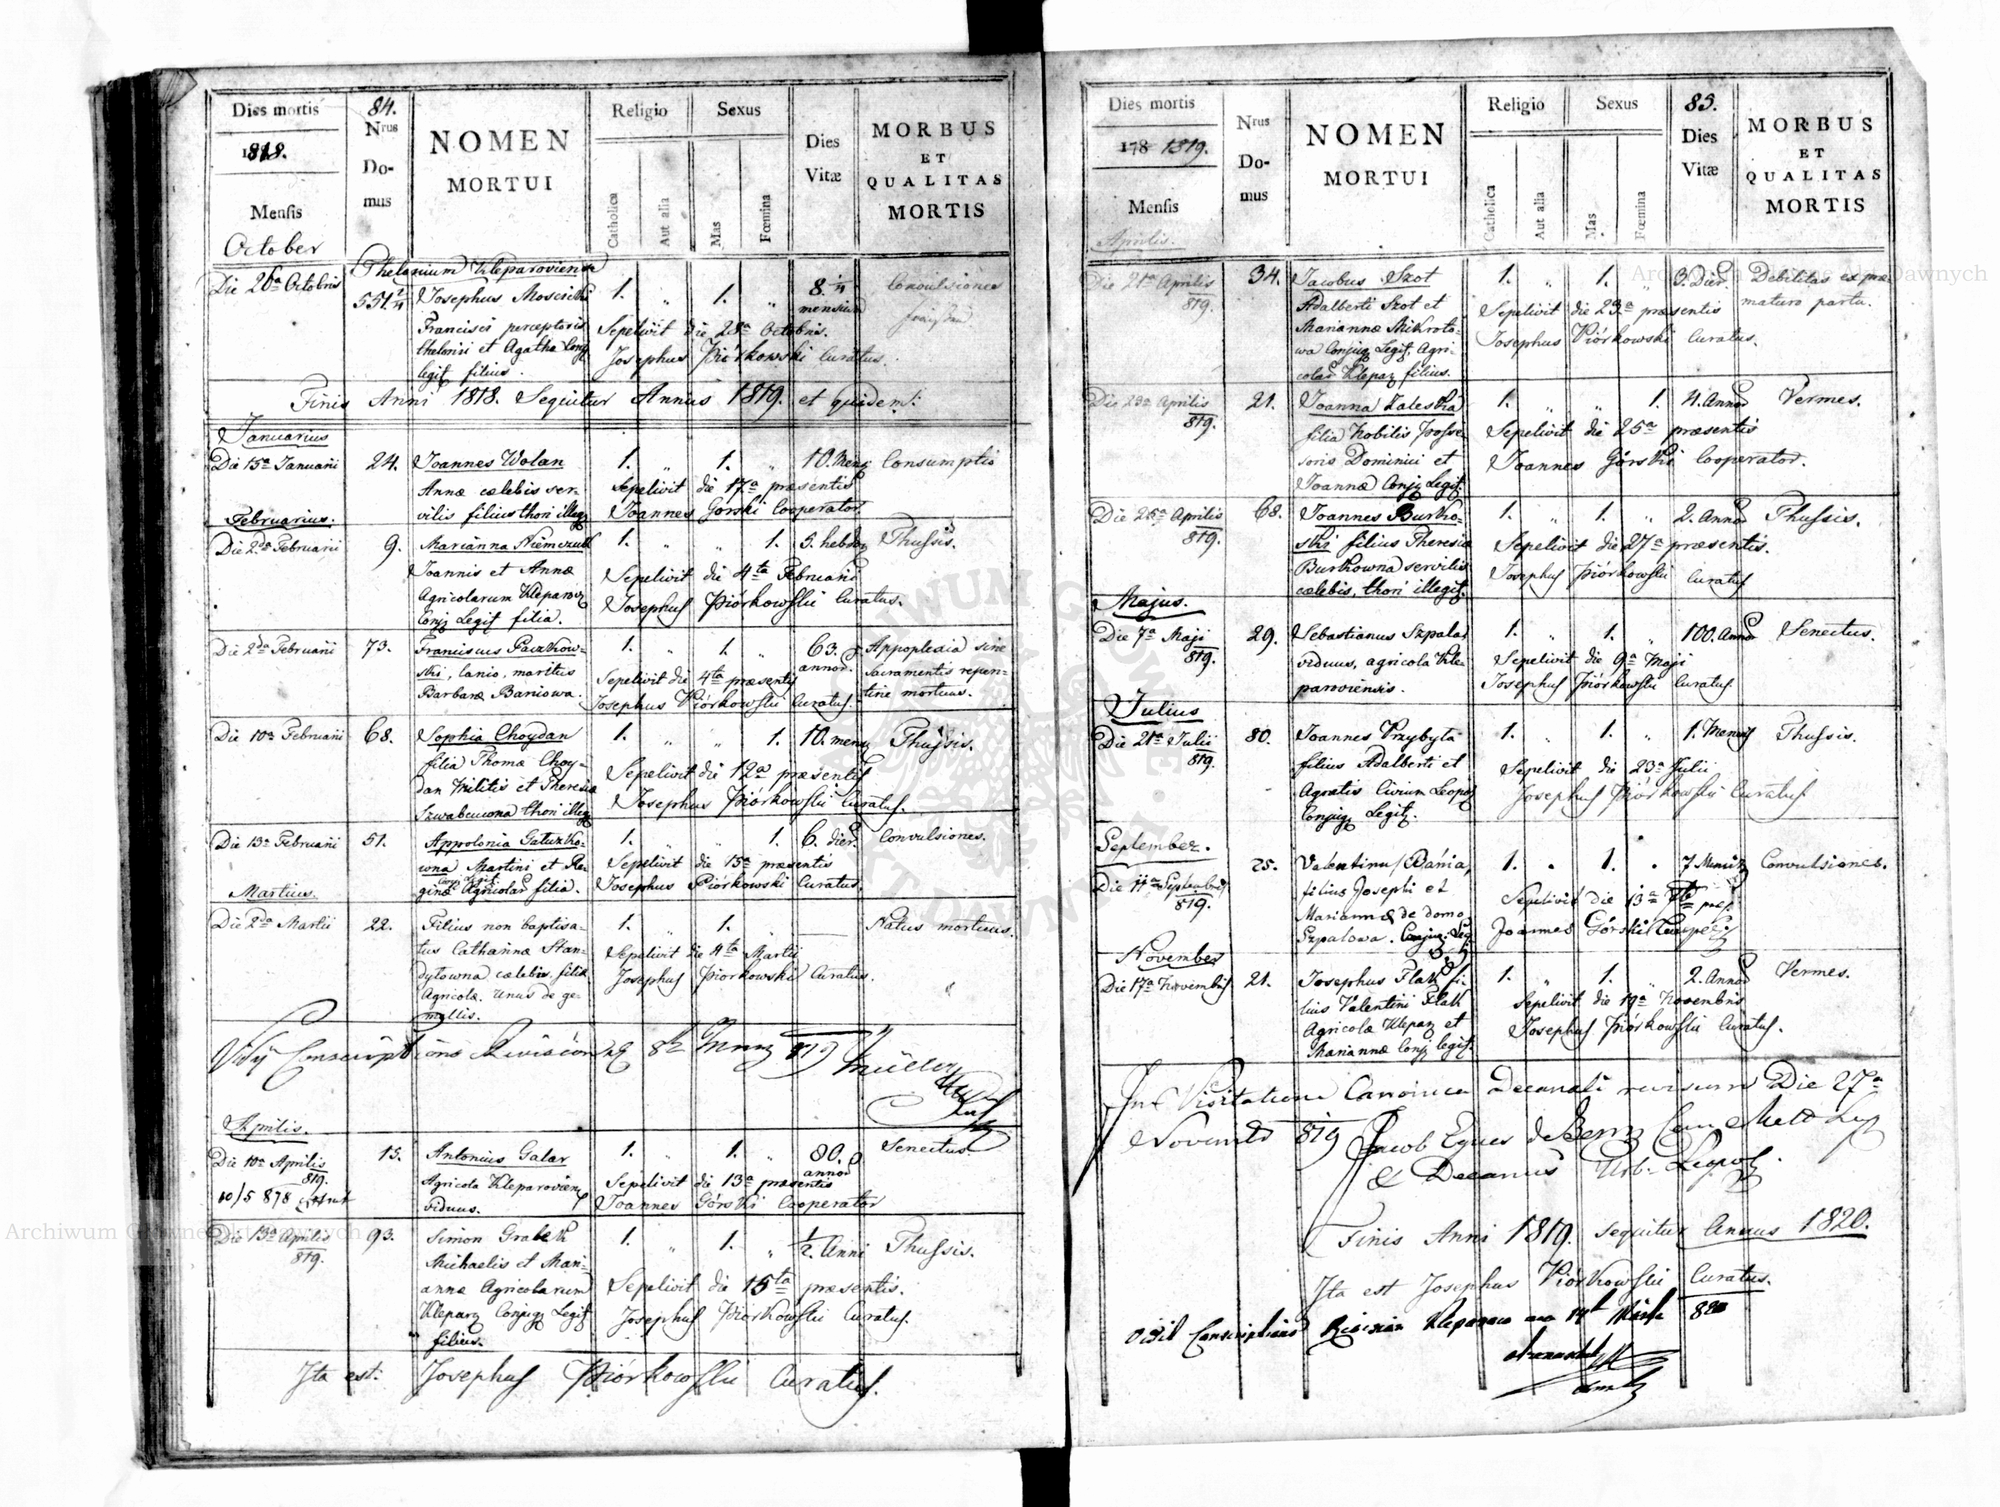 Dies mortis
1818.
Mensis
October
84.
Nrus
Do-
mus
NOMEN
MORTUI
Religio
Catholica
Aut alia
Sexus
Mas
Fœmina
Dies
Vitæ
MORBUS
ET
QUALITAS
MORTIS
Thelonium Kleparoviense
Die 26a Octobris
551 2/4
Josephus Moscicki
Francisci perceptoris
thelonii et Agatha Conj
legit filius.
1. „ 1. „
8. 1/4
mensium
Convulsiones
Sepelivit die 28a Octobris.
Josephus Piórkowski Curatus.
Finis Anni 1818. Sequitur Annus 1819. et quidem:
Januarius
Die 15a Januarii
24.
Joannes Wolan
Annæ cælebis ser-
vilis filius thori illeg
1. „ 1. „
10. Mens
Consumptio
Sepelivit die 17a præsentis
Joannes Górski Cooperator
Februarius.
Die 2da Februarii
9.
Marianna Niemczuk
Joannis et Annæ
Agricolarum Kleparov
Conj Legit filia.
1. „ „ 1.
3. hebdom
Thussis.
Sepelivit die 4ta Februarii
Josephus Piórkowski Curatus.
Die 2da Februarii
73.
Franciscus Paczkow-
ski, lanio, maritus
Barbaræ Baniowa.
1. „ 1. „
63.
annor.
Appoplexia sine
Sacramentis repen-
tine mortuus.
Sepelivit die 4ta præsentis
Josephus Piórkowski Curatus.
Die 10a Februarii
68.
Sophia Choydan
filia Thomæ Choy-
dan Militis et Theresiæ
Szwabcuwna thori illeg
1. „ „ 1.
10. mens
Thussis.
Sepelivit die 12a præsentis
Josephus Piórkowski Curatus.
Die 13a Februarii
51.
Appolonia Gatuszko-
wna Martini et Re-
Conj Legit
ginæ Agricolar filia.
1. „ „ 1.
6. dier.
Convulsiones.
Sepelivit die 15a præsentis
Josephus Piórkowski Curatus
Martius.
Die 2da Martii
22.
Filius non baptisa-
tus Catharinæ Stan-
dytowna cælebis. filiæ
Agricolæ. Unus de ge-
mellis.
1. „ 1. „
Natus mortuus.
Sepelivit die 4ta Martii
Josephus Piorkowski Curatus.
Vidi Conscriptions Revision 819 Müller
Aprilis.
Die 10a Aprilis
819.
15.
Antonius Galar
Agricola Kleparovien
viduus.
1. „ 1. „
80.
annor
Senectus
Sepelivit die 13a præsentis
Joannes Górski Cooperator
Die 13a Aprilis
819.
93.
Simon Grabek
Michaelis et Mari-
annæ Agricolarum
Klepar Conjug Legit
filius.
1. „ 1. „
1/2. Anni
Thussis.
Sepelivit die 15ta præsentis.
Josephus Piórkowski Curatus.
Ita est: Josephus Piórkowski Curatus.
Dies mortis
178 1819.
Mensis
Aprilis.
Nrus
Do-
mus
NOMEN
MORTUI
Religio
Catholica
Aut alia
Sexus
Mas
Fœmina
85.
Dies
Vitæ
MORBUS
ET
QUALITAS
MORTIS
Die 21a Aprilis
819.
34.
Jacobus Szot
Adalberti Szot et
Mariannæ Mikroto-
wa Conjug Legit, Agri-
colar Klepar filius.
1. „ 1. „
3. Dier.
Debilitas ex præ-
maturo partu.
Sepelivit die 23a præsentis
Josephus Piórkowski Curatus.
Die 23a Aprilis
819.
21.
Joanna Zaleska
filia Nobilis Posses-
soris Dominici et
Joannæ Conj Legit.
1. „ „ 1.
4. Annor
Vermes.
Sepelivit die 25a præsentis
Joannes Górski Cooperator.
Die 25a Aprilis
819.
68.
Joannes Burko-
ski filius Theresiæ
Burkowna servilis
cælebis, thori illegit.
1. „ 1. „
2. Annor
Thussis.
Sepelivit die 27a præsentis.
Josephus Piórkowski Curatus
Majus.
Die 7a Maji
819.
29.
Sebastianus Szpalar
viduus, agricola Kle-
paroviensis.
1. „ 1. „
100. Annor
Senectus.
Sepelivit die 9a Maji
Josephus Piórkowski Curatus.
Julius
Die 21a Julii
819.
80.
Joannes Przybyta
filius Adalberti et
Agnetis Civium Leopol
Conjug Legit.
1. „ 1. „
1. Mensis
Thussis.
Sepelivit die 23a Julii
Josephus Piórkowski Curatus
September.
Die 11a Septembris
819.
25.
Valentinus Bania,
filius Josephi et
Mariannæ de domo
Szpalowa. Conjug: Leg.
1. „ 1. „
7 Mensis
Convulsiones.
Sepelivit die 13a
Joannes Górski Cooper
November
Die 17a Novembris
21.
Josephus Flak fi-
lius Valentini Flak
Agricolæ Klepar et
Mariannæ Conj legit.
1. „ 1. „
2. Annor
Vermes.
Sepelivit die 19a Novembris
Josephus Piórkowski Curatus.
In Visitatione Canonica Decanali revisum Die 27a
Novembr 819 Jacob Eques de Berny Can Metr Leop
& Decanus Urb. Leopol.
Finis Anni 1819. sequitur Annus 1820.
Ita est Josephus Piórkowski Curatus.
Vidit Conscriptions Revision Kleparow am 14t März 820
Archiwum Główne Akt Dawnych